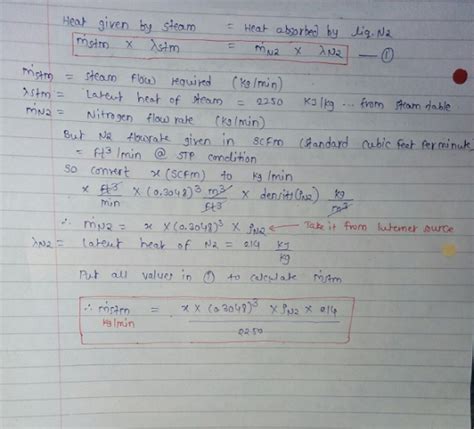 Heat given by steam = Heat absorbed by liq. N2
ṁstm × λstm = ṁN2 × λN2 — ①
ṁstm = steam flow required (kg/min)
λstm = Latent heat of steam = 2250 KJ/kg ... from steam table
ṁN2 = Nitrogen flow rate (kg/min)
But N2 flowrate given in SCFM (Standard cubic feet per minute)
= ft³/min @ STP condition
So convert x (SCFM) to kg/min
x ft³/min × (0.3048)³ m³/ft³ × density (ρN2) kg/m³
∴ ṁN2 = x × (0.3048)³ × ρN2 ← Take it from Internet source
λN2 = Latent heat of N2 = 214 KJ/kg
Put all values in ① to calculate ṁstm
∴ ṁstm = x × (0.3048)³ × ρN2 × 214
kg/min 2250